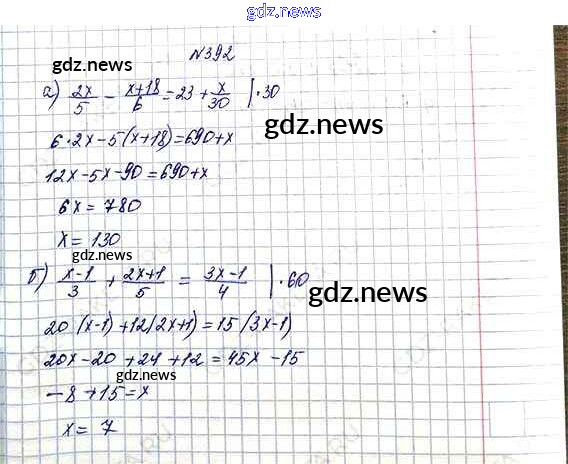 gdz.news
N392
gdz.news
а) 2x/5 - x+18/6 = 23 + x/30 | ·30
gdz.news
6·2x-5(x+18)=690+x
12x-5x-90=690+x
6x = 780
x = 130
gdz.news
б) x-1/3 + 2x+1/5 = 3x-1/4 | ·60
gdz.news
20(x-1)+12(2x+1)=15(3x-1)
20x-20+24+12=45x-15
gdz.news
-8+15=x
x = 7